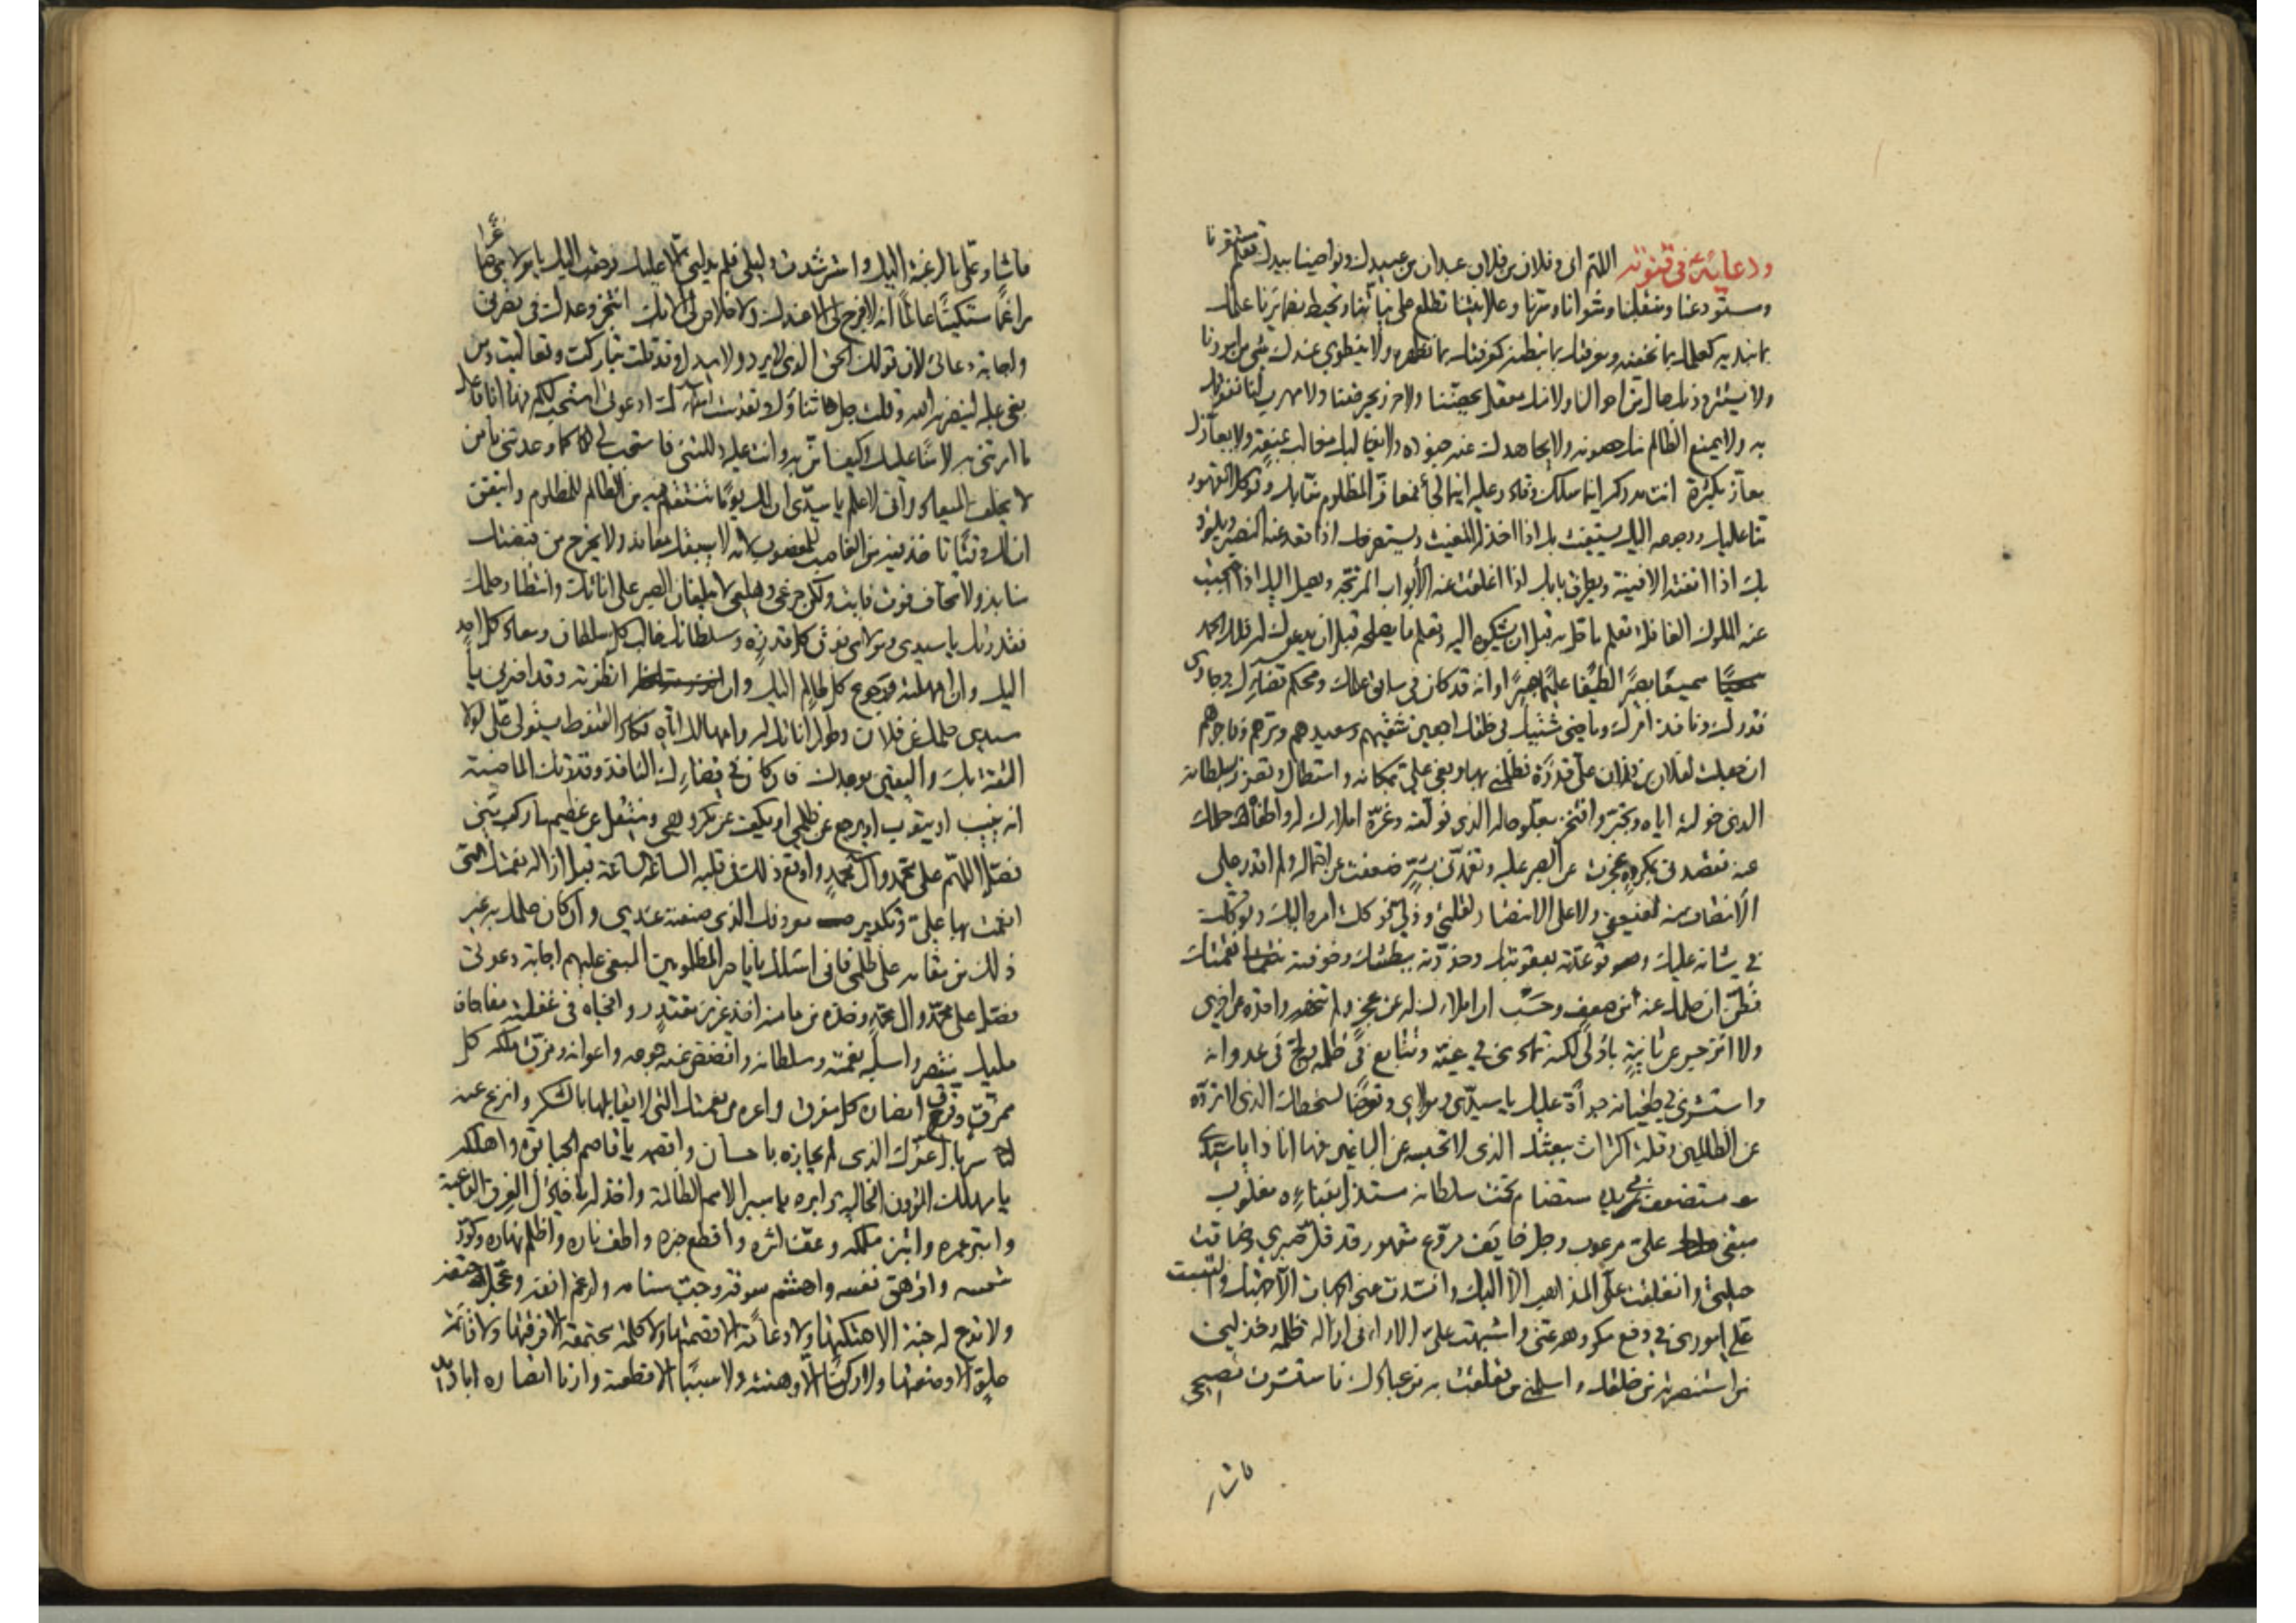 ودعائه ع في قنوته اللهم اني وفلان بن فلان عبدان من عبيدك ونواصينا بيدك تعلم مستقرنا
ومستودعنا ومنقلبنا ومثوانا وسرنا وعلانيتنا تطلع على نياتنا وتحيط بضمائرنا علمك
بما نبديه كعلمك بما نخفيه ومعرفتك بما نبطنه كمعرفتك بما نظهره ولا ينطوي عندك شيء من امورنا
ولا يستتر دونك حال من احوالنا ولا منك معقل يحصننا ولا حرز يحرزنا ولا مهرب لنا نفوتك
به ولا يمنع الظالم منك حصونه ولا يجاهدك عنه جنوده ولا يغالبك مغالب بمنعة ولا يعازك
معاز بكثرة انت مدركه اينما سلك وقادر عليه اينما لجأ فمعاذ المظلوم منا بك وتوكل المقهور
منا عليك ورجوعه اليك يستغيث بك اذا خذله المغيث ويستصرخك اذا قعد عنه النصير ويلوذ
بك اذا نفته الافنية ويطرق بابك اذا اغلقت عنه الأبواب المرتجة ويصل اليك اذا احتجبت
عنه الملوك الغافلة تعلم ما حل به قبل ان يشكوه اليه وتعلم ما يصلحه قبل ان يدعوك له فلك الحمد
سميعا بصيرا لطيفا عليما خبيرا وانه قد كان في سابق علمك ومحكم قضائك وجاري
قدرك ونافذ امرك وماضي مشيتك في خلقك اجمعين شقيهم وسعيدهم وبرهم وفاجرهم
ان جعلت لفلان بن فلان علي قدرة فظلمني بها وبغى علي بمكانه واستطال وتعزز بسلطانه
الذي خولته اياه وتجبر وافتخر بعلو حاله الذي نولته وغره املاؤك له واطغاه حلمك
عنه فقصدني بمكروه عجزت عن الصبر عليه وتغمدني بشر ضعفت عن احتماله ولم اقدر على
الانتصاف منه لضعفي ولا على الانتصار لقلتي وذلي فوكلت امره اليك وتوكلت
في شانه عليك وتوعدته بعقوبتك وحذرته ببطشك وخوفته نقمتك
فظن ان حلمك عنه من ضعف وحسب ان املاءك له عن عجز ولم تنهه واحدة عن اخرى
ولا انزجر عن ثانية باولى لكنه تمادى في غيه وتتابع في ظلمه ولج في عدوانه
واستشرى في طغيانه جرأة عليك يا سيدي ومولاي وتعرضا لسخطك الذي لا ترده
عن الظالمين وقلة اكتراث ببأسك الذي لا تحبسه عن الباغين فها انا ذا يا سيدي
مستضعف في يديه مستضام تحت سلطانه مستذل بفنائه مغلوب
مبغي علي مرعوب وجل خائف مروع مقهور قد قل صبري وضاقت
حيلتي وانغلقت علي المذاهب الا اليك وانسدت عني الجهات الا جهتك والتبست
علي اموري في دفع مكروهه عني واشتبهت علي الاراء في ازالة ظلمه وخذلني
من استنصرته من خلقك واسلمني من تعلقت به من عبادك فاستشرت نصيحي
فاشار
فاشار علي بالرغبة اليك واسترشدت دليلي فلم يدلني الا عليك فرجعت اليك يا مولاي صاغرا
راغما مستكينا عالما انه لا فرج لي الا عندك ولا خلاص لي الا بك انتجز وعدك في نصرتي
واجابة دعائي لان قولك الحق الذي لا يرد ولا يبدل وقد قلت تباركت وتعاليت ومن
بغي عليه لينصرنه الله وقلت جل ثناؤك وتقدست اسماؤك ادعوني استجب لكم فها انا فاعل
ما امرتني به لا منا عليك وكيف امن به وانت عليه دللتني فاستجب لي كما وعدتني يا من
لا يخلف الميعاد واني لاعلم يا سيدي ان لك يوما تنتقم فيه من الظالم للمظلوم واتيقن
ان لك وقتا تاخذ فيه من الغاصب للمغضوب لانه لا يسبقك معاند ولا يخرج من قبضتك
منابذ ولا تخاف فوت فايت ولكن جزعي وهلعي لا يبلغان الصبر على اناتك وانتظار حلمك
فقدرتك يا سيدي ومولاي فوق كل قدرة وسلطانك غالب كل سلطان ومعاد كل احد
اليك وان امهلته ورجوع كل ظالم اليك وان انظرته وقد اضرني يا
سيدي حلمك عن فلان وطول اناتك له وامهالك اياه فكاد القنوط يستولي علي لولا
الثقة بك واليقين بوعدك فان كان في قضائك النافذ وقدرتك الماضية
انه ينيب او يتوب او يرجع عن ظلمي او يكف عن مكروهي وينتقل عن عظيم ما ركب مني
فصل اللهم على محمد وآل محمد واوقع ذلك في قلبه الساعة الساعة قبل ازالة نعمتك التي
انعمت بها علي وتكدير معروفك الذي صنعته عندي وان كان علمك به غير
ذلك من مقامه على ظلمي فاني اسئلك يا ناصر المظلومين المبغي عليهم اجابة دعوتي
فصل على محمد وال محمد وخذه من مامنه اخذ عزيز مقتدر وافجاه في غفلته مفاجاة
مليك منتصر واسلبه نعمته وسلطانه وافضض عنه جموعه واعوانه ومزق ملكه كل
ممزق وفرق انصاره كل مفرق واعره من نعمتك التي لا يقابلها بالشكر وانزع عنه
سربال عزك الذي لم يجازه باحسان واقصمه يا قاصم الجبابرة واهلكه
يا مهلك القرون الخالية وابره يا مبير الامم الظالمة واخذله يا خاذل الفرق الباغية
وابتر عمره وابتز ملكه وعف اثره واقطع خبره واطف ناره واظلم نهاره وكور
شمسه وازهق نفسه واهشم سوقه وجب سنامه وارغم انفه وعجل حتفه
ولا تدع له جنة الا هتكتها ولا دعامة الا قصمتها ولا كلمة مجتمعة الا فرقتها ولا قائمة
علو الا وضعتها ولا ركنا الا وهنته ولا سببا الا قطعته وارنا انصاره اباديد